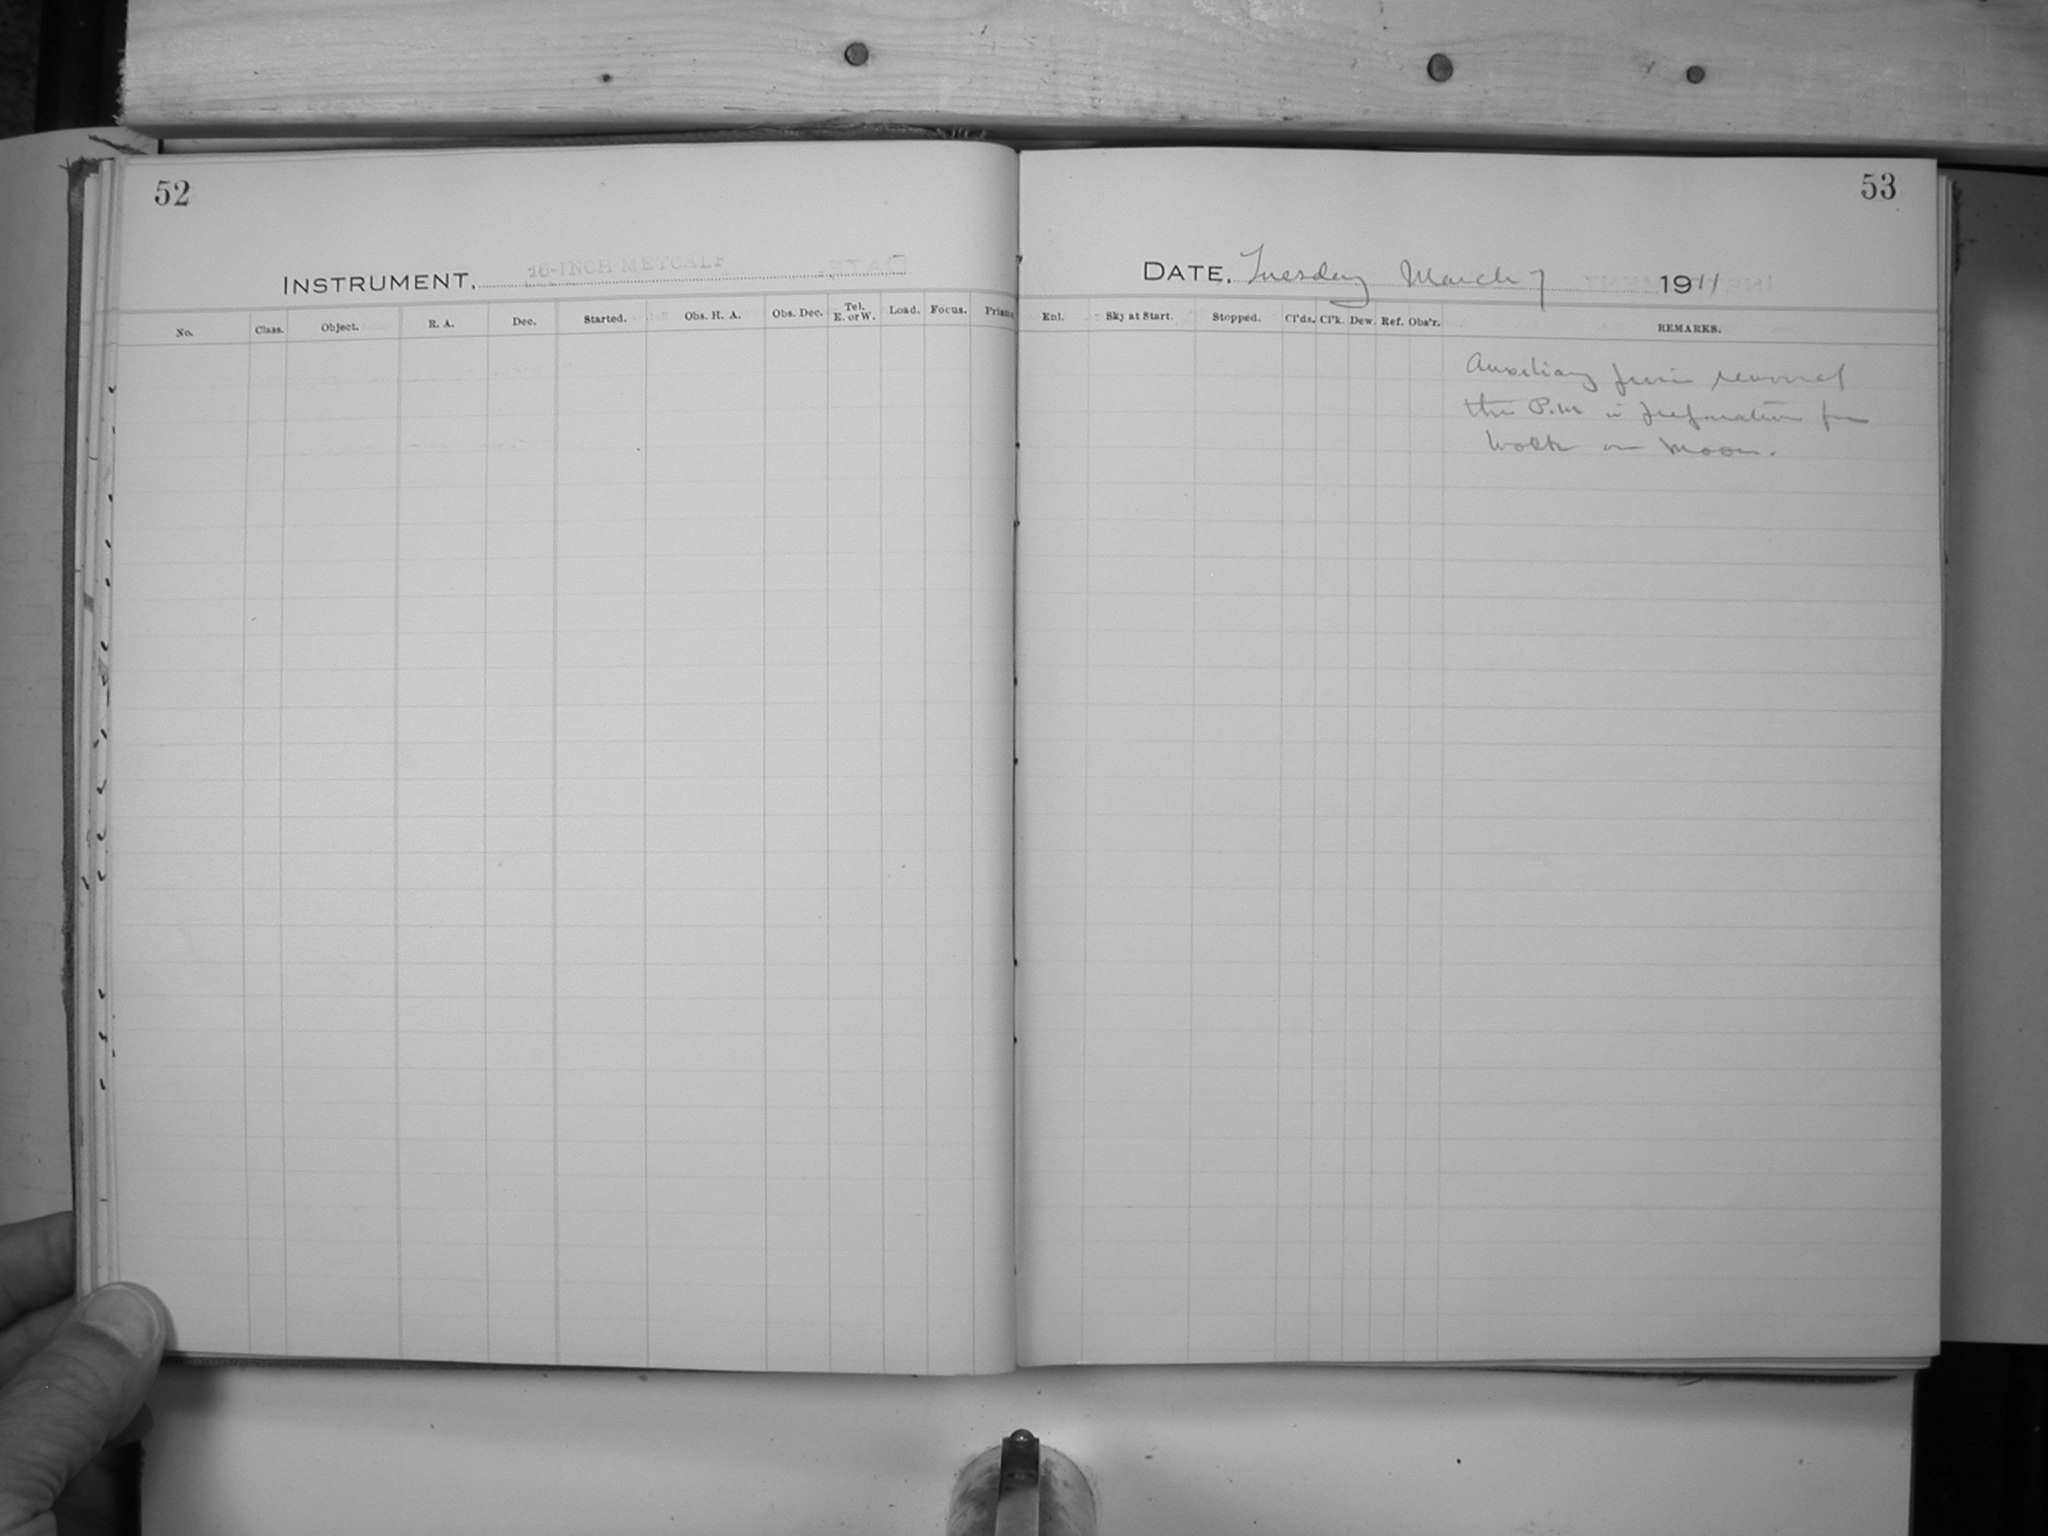 52
INSTRUMENT, 16-INCH METCALF
No. Class. Object. R. A. Dec. Started. Obs. H. A. Obs. Dec. Tel. E. or W. Load. Focus. Prism.
53
DATE, Tuesday March 7 1911
Enl. Sky at Start. Stopped. Cl'ds. Cl'k. Dew. Ref. Obs'r. REMARKS.
Auxiliary removed
this P.M. in preparation for
work on Moon.